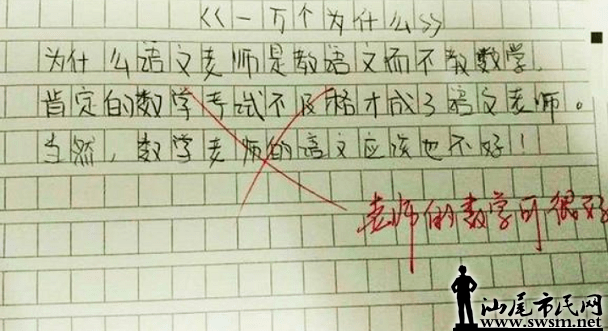 《一万个为什么》
为什么语文老师是教语文而不教数学,
肯定的数学考试不及格才成了语文老师。
当然,数学老师的语文应该也不好！
老师的数学可很好
汕尾市民网
www.swsm.net